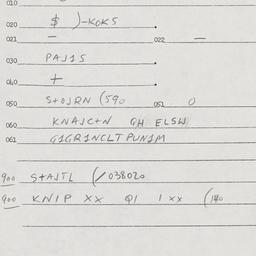 010
020 $ )-KOKS .
021 — 022 —
030 PAJ1S .
040 +
050 S+OJRN (590 051 0
060 KNAJC+N GH ELSW
061 G1GR1NCLT PUN1M
900 S+AJTL (/038020
900 KNIP XX Q1 1 XX (140